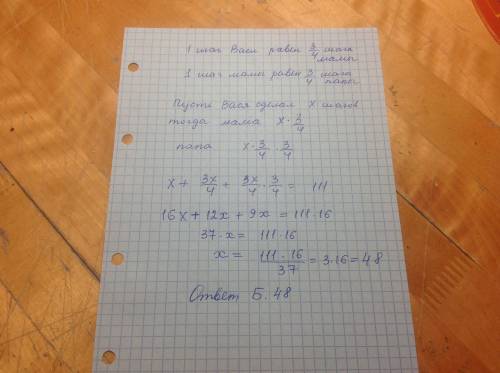 1 шаг Васи равен 3/4 шага мамы
1 шаг мамы равен 3/4 шага папы
Пусть Вася сделал x шагов
тогда мама x · 3/4
папа x · 3/4 · 3/4
x + 3x/4 + 3x/4 · 3/4 = 111
16x + 12x + 9x = 111·16
37·x = 111·16
x = 111·16/37 = 3·16 = 48
Ответ Б. 48